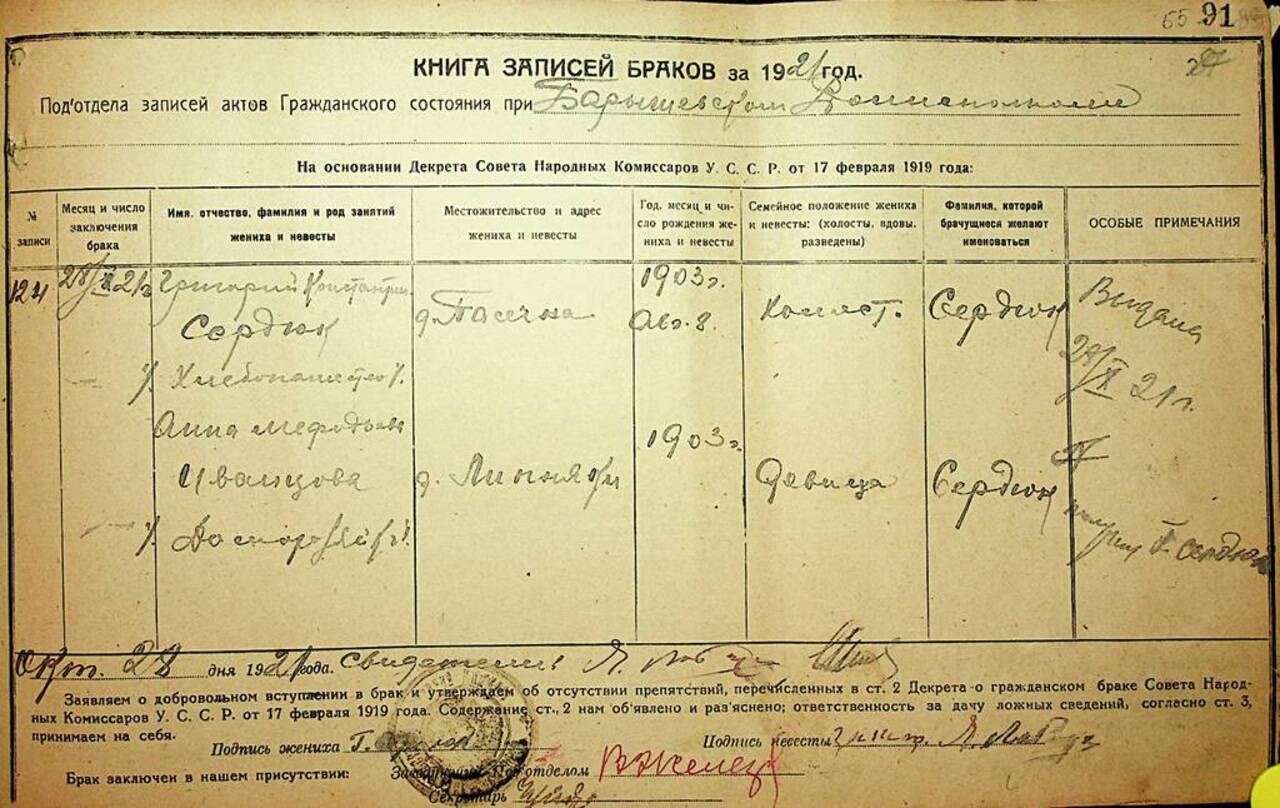 91
КНИГА ЗАПИСЕЙ БРАКОВ за 1921 год.
Под'отдела записей актов Гражданского состояния при Барышевском
На основании Декрета Совета Народных Комиссаров У. С. С. Р. от 17 февраля 1919 года:
№ записи
Месяц и число заключения брака
Имя, отчество, фамилия и род занятий жениха и невесты
Местожительство и адрес жениха и невесты
Год, месяц и число рождения жениха и невесты
Семейное положение жениха и невесты: (холосты, вдовы, разведены)
Фамилия, которой брачущиеся желают именоваться
ОСОБЫЕ ПРИМЕЧАНИЯ
124
28/X 21г
Григорий Константин.
Сердюк
Хлебопашество
д. Пасечна
1903 г.
Авг. 8.
Холост.
Сердюк
Выдана
28/X 21 г.
Анна Мефодьевн
Иванцова
д.
1903 г.
Девица
Сердюк
Г. Сердюк
Окт. 28 дня 1921 года. Свидетели Я.
Заявляем о добровольном вступлении в брак и утверждаем об отсутствии препятствий, перечисленных в ст. 2 Декрета о гражданском браке Совета Народ-
ных Комиссаров У. С. С. Р. от 17 февраля 1919 года. Содержание ст., 2 нам об'явлено и раз'яснено; ответственность за дачу ложных сведений, согласно ст. 3,
принимаем на себя.
Подпись жениха Г.
Подпись невесты
Брак заключен в нашем присутствии:
Заведующий Под'отделом
Секретарь